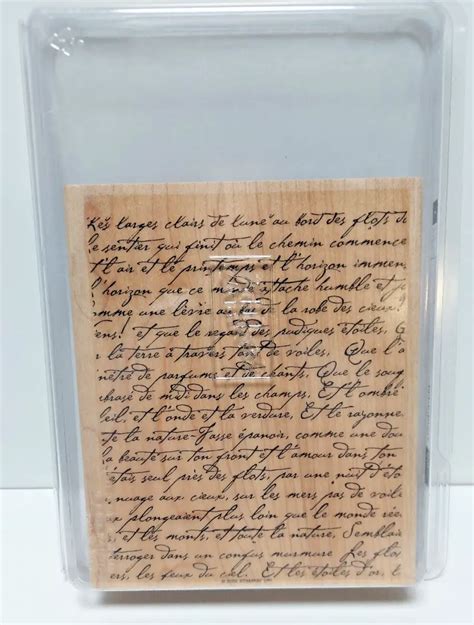 Les larges clairs de lune au bord des flots d
le sentier qui finit où le chemin commence
t l'air et le printemps et l'horizon immen
l'horizon que ce monde attache humble et j
omme une lèvre au bas de la robe des cieux!
ens! et que le regard des pudiques étoiles,
r la terre à travers tant de voiles, Que l'a
de parfums et de chants, Que le souf
de midi dans les champs, Et l'ombre
leil, et l'onde et la verdure, Et le rayonne
te la nature Fasse épanouir, comme une dou
a beauté sur ton front et l'amour dans ton
étais seul près des flots, par une nuit d'éto
nuage aux cieux, sur les mers pas de voile
x plongeaient plus loin que le monde rée
et les monts, et toute la nature, Semblaie
terroger dans un confus murmure Les flo
ers, les feux du ciel. Et les étoiles d'or, l